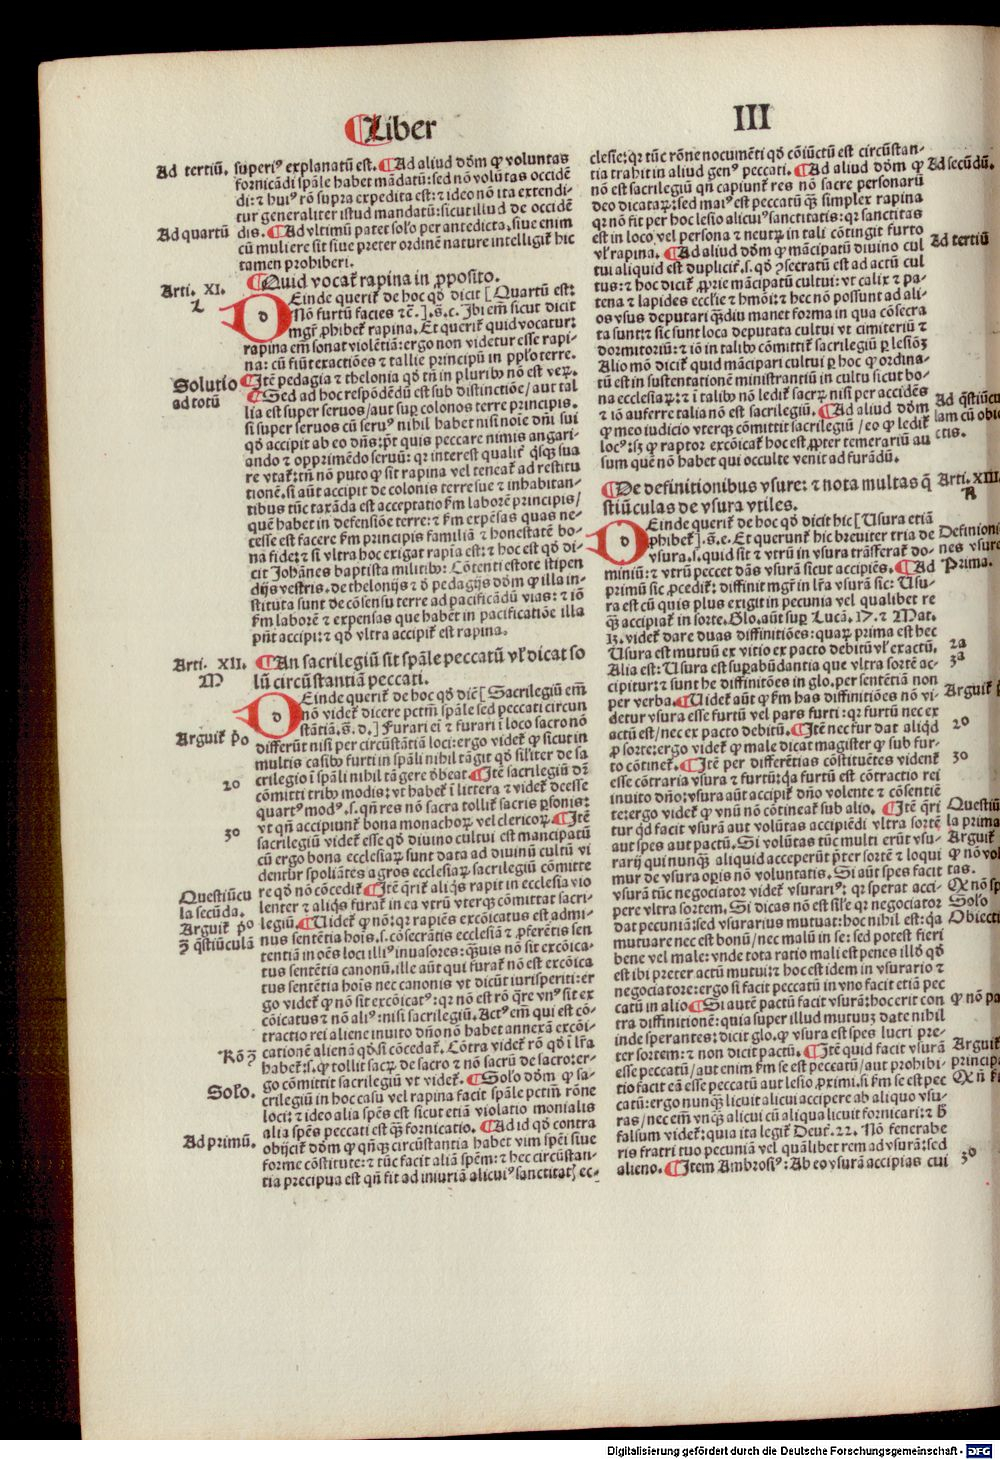 ¶Liber
III
Ad tertiū.
superiꝰ explanatū est. ¶Ad aliud dōm ꝙ voluntas
fornicādi spāle habet mādatū: sed nō volūtas occidē
di: ⁊ huiꝰ rō supra expedita est: ⁊ ideo nō ita extendi-
tur generaliter istud mandatū: sicut illud de occidē
Ad quartū
dis. ¶Ad vltimū patet solo per antedicta, siue enim
cū muliere sit siue preter ordinē nature intelligit̄ hic
tamen prohiberi.
Arti. XI.
L
¶Quid vocat̄ rapina in ꝓposito.
Deinde querit̄ de hoc qḋ dicit [Quartū est:
Nō furtū facies ⁊c̄.]. s̄. c. Ibi em̄ sicut dicit
mgr̄ ꝓhibet̄ rapina. Et querit̄ quid vocatur:
rapina em̄ sonat violētiā: ergo non videtur esse rapi-
na: cū fiūt exactiōes ⁊ tallie principū in ppl̄o terre.
Solutio
ad totū
¶Itē pedagia ⁊ thelonia qḋ tn̄ in plurib⁹ nō est veꝝ.
¶Sed ad hoc respōdēdū est sub distinctiōe/ aut tal
lia est super seruos/ aut suꝑ colonos terre principis.
si super seruos cū seruꝰ nihil habet nisi noīe dn̄i sui
qḋ accipit ab eo dn̄s: pr̄t quis peccare nimis angari-
ando ⁊ opprimēdo seruū: qr interest qualit̄ q̄sq̄ sua
re vtat̄: tn̄ nō puto ꝙ sit rapina vel teneat̄ ad restitu
tionē. si aūt accipit de colonis terre sue ⁊ inhabitan-
tibus tūc taxāda est acceptatio ẜm laborē principis/
quē habet in defensiōe terre: ⁊ ẜm expēsas quas ne-
cesse est facere ẜm principis familiā ⁊ honestatē bo-
na fide: ⁊ si vltra hoc exigat rapīa est: ⁊ hoc est qḋ di-
cit Johānes baptista militib⁹: Cōtenti estote stipen
dijs vestris. de thelonijs ⁊ ḋ pedagijs dōm ꝙ illa in-
stituta sunt de cōsensu terre ad pacificādū vias: ⁊ iō
ẜm laborē ⁊ expensas que habēt in pacificatiōe illa
pn̄t accipi: ⁊ qḋ vltra accipit̄ est rapina.
Arti. XII.
M
¶An sacrilegiū sit spāle peccatū vl̓ dicat so
lū circūstantiā peccati.
Deinde querit̄ de hoc qḋ dic̄ [Sacrilegiū em̄
nō videt̄ dicere pctm̄ spāle sed peccati circun
stātiā. s̄. d.] Furari ei̅ ⁊ furari ī loco sacro nō
Arguit̄ pº
differūt nisi per circūstātiā loci: ergo videt̄ ꝙ sicut in
multis casib⁹ furti in spāli nihil tāgit qḋ sil̓iter de sa
crilegio ī spāli nihil tāgere ḋbeat. ¶Itē sacrilegiū dr̄
2º
cōmitti trib⁹ modis: vt habet̄ ī littera ⁊ videt̄ deesse
quartꝰ modꝰ. s. qn̄ res nō sacra tollit̄ sacris ꝑsonis:
vt qn̄ accipiunt̄ bona monachoꝝ vel clericoꝝ. ¶Itē
3º
sacrilegiū videt̄ esse qḋ diuino cultui est mancipatū
cū ergo bona ecclesiaꝝ sunt data ad diuinū cultū vi
dentur spoliātes agros ecclesiaꝝ sacrilegiū cōmitte
Questiūcu
la secūda.
re qḋ nō cōcedit̄. ¶Itē q̄rit̄ aliq̄s rapit in ecclesia vio
lenter ⁊ aliq̄s furat̄ in ea vtrū vterq̄ cōmittat sacri-
Arguit̄ pº
ʒ q̄stiūculā
legiū. ¶Uidet̄ ꝙ nō: qr rapiēs excōicatus est admi-
nus sentētia hois. s. cōsecratis ecclesiā ⁊ ꝓferētis sen
tentiā in oēs loci illiꝰ inuasores: q̄uis nō sit excōica-
tus sentētia canonū, ille aūt qui furat̄ nō est excōica
tus sentētia hois nec canonis vt dicūt iurisperiti: er
go videt̄ ꝙ nō sit excōicatꝰ: qr nō est rō q̄re vnꝰ sit ex
cōicatus ⁊ nō aliꝰ: nisi sacrilegiū. Actꝰ em̄ qui est cō-
tractio rei aliene inuito dn̄o nō habet annexā excōi-
Rō ʒ
cationē alienā qḋ si cōcedat̄. Cōtra videt̄ rō qḋ ī lr̄a
habet̄: s. ꝙ tollit sacꝝ de sacro ⁊ nō sacrū de sacro: er-
go cōmittit sacrilegiū vt videt̄. ¶Solo dōm ꝙ sa-
Solo.
crilegiū in hoc casu vel rapina facit spāle pctm̄ rōne
loci: ⁊ ideo alia spēs est sicut etiā violatio monialis
alia spēs peccati est q̄ fornicatio. ¶Ad id qḋ contra
Ad primū.
obijcit̄ dōm ꝙ qn̄q̄ circūstantia habet vim spēi siue
forme cōstitute: ⁊ tūc facit aliā spēm: ⁊ hec circūstan-
tia precipua est qn̄ fit ad iniuriā alicuiꝰ sanctitatꝭ ec-
clesie: qr tūc rōne nocumēti qḋ cōiūctū est circūstan-
tia trahit in aliud genꝰ peccati. ¶Ad aliud dōm ꝙ
Ad secūdū.
nō est sacrilegiū qn̄ capiunt̄ res nō sacre personarū
deo dicataꝝ: sed maiꝰ est peccatū q̄ simplex rapina
qr nō fit per hoc lesio alicuiꝰ sanctitatis: qr sanctitas
est in loco, vel persona ⁊ neutꝝ in tali cōtingit furto
Ad tertiū
vl̓ rapina. ¶Ad aliud dōm ꝙ mācipatū diuino cul
tui aliquid est duplicit̄. s. qḋ ꝯsecratū est ad actū cul
tus: ⁊ hoc dicit̄ ꝓprie mācipatū cultui: vt calix ⁊ pa-
tena ⁊ lapides ecclīe ⁊ hmōi: ⁊ hec nō possunt ad ali-
os vsus deputari q̄diu manet forma in qua cōsecra
ta sunt: ⁊ sic sunt loca deputata cultui vt cimiteriū ⁊
dormitoriū: ⁊ iō in talib⁹ cōmittit̄ sacrilegiū ꝑ lesionē
Alio mō dicit̄ quid mācipari cultui ꝑ hoc ꝙ ordina-
tū est in sustentationē ministrantiū in cultu sicut bo-
na ecclesiaꝝ: ⁊ ī talib⁹ nō ledit̄ sacꝝ nisi per accidēs
Ad q̄stiūcu
lam cū obie
ctis.
⁊ iō auferre talia nō est sacrilegiū. ¶Ad aliud dōm
ꝙ meo iudicio vterq̄ cōmittit sacrilegiū/ eo ꝙ ledit̄
locꝰ: sꝫ ꝙ raptor excōicat̄ hoc est ꝓpter temerariū au
sum quē nō habet qui occulte venit ad furādū.
Arti. XIII.
R
¶De definitionibus vsure: ⁊ nota multas q̄
stiūculas de vsura vtiles.
Deinde querit̄ de hoc qḋ dicit hic [Usura etiā
ꝓhibet̄]. s̄. e. Et querunt̄ hic breuiter tria de
Definitio
nes vsure
vsura. s. quid sit ⁊ vtrū in vsura trāsferat̄ do-
miniū: ⁊ vtrū peccet dās vsurā sicut accipiēs. ¶Ad
Prima.
primū sic ꝓcedit̄: diffinit mgr̄ in lr̄a vsurā sic: Usu-
ra est cū quis plus exigit in pecunia vel qualibet re
q̄ accipiat̄ in sorte. Glo. aūt suꝑ Lucā. 17. ⁊ Mat.
13. videt̄ dare duas diffinitiōes: quaꝝ prima est hec
2a
Usura est mutuū ex vitio ex pacto debitū vl̓ exactū.
3a
Alia est: Usura est suꝑabūdantia que vltra sortē ac-
cipitur: ⁊ sunt he diffinitōes in glo. per sentētiā non
Arguit̄
per verba. ¶Uidet̄ aūt ꝙ ẜm has diffinitiōes nō vi-
detur vsura esse furtū vel pars furti: qr furtū nec ex
2º
actū est/ nec ex pacto debitū. ¶Itē nec fur dat aliq̄d
ꝓ sorte: ergo videt̄ ꝙ male dicat magister ꝙ sub fur-
3º
to cōtinet̄. ¶Itē per differētias cōstituētes vident̄
esse cōtraria vsura ⁊ furtū: q̄a furtū est cōtractio rei
inuito dn̄o: vsura aūt accipit̄ dn̄o volente ⁊ cōsentiē
te: ergo videt̄ ꝙ vnū nō cōtineat̄ sub alio. ¶Itē q̄ri
Questiū
la prima
Arguit̄
ꝙ nō vol
tas.
tur qḋ facit vsurā aut volūtas accipiēdi vltra sortē
aut spes aut pactū. Si volūtas tūc multi erūt vsu-
rarij qui nunq̄ aliquid acceperūt p̄ter sortē ⁊ loqui
mur de vsura oꝑis nō voluntatis. Si aūt spes facit
vsurā tūc negociator videt̄ vsurariꝰ: qr sperat acci-
Qꝰ nō sp
pere vltra sortem. Si dicas nō est sil̓e qr negociator
Solo
dat pecuniā: sed vsurarius mutuat: hoc nihil est: q̄a
Obiecti
mutuare nec est bonū/ nec malū in se: sed potest fieri
bene vel male: vnde tota ratio mali est penes illḋ qḋ
est ibi preter actū mutui: ⁊ hoc est idem in vsurario ⁊
negociatore: ergo si facit peccatū in vno facit etiā pec
catū in alio ¶Si autē pactū facit vsurā: hoc erit con
ꝙ nō pa
tra diffinitionē: quia super illud mutuuꝫ date nihil
inde sperantes: dicit glo. ꝙ vsura est spes lucri pre-
ter sortem: ⁊ non dicit pactū. ¶Itē quid facit vsurā
Arguit̄
principa
esse peccatū/ aut enim ẜm se est peccatū/ aut prohibi-
tio facit eā esse peccatū aut lesio ꝓximi. si ẜm se est pec
Qꝰ n̄
catū: ergo nunq̄ licuit alicui accipere ab aliquo vsu-
ras/ nec em̄ vnq̄ alicui cū aliqua licuit fornicari: ⁊ ḣ
falsum videt̄: quia ita legit̄ Deut̄. 22. Nō fenerabe
ris fratri tuo pecuniā vel quālibet rem ad vsurā: sed
3º
alieno. ¶Item Ambrosiꝰ: Ab eo vsurā accipias cui
Digitalisierung gefördert durch die Deutsche Forschungsgemeinschaft - DFG